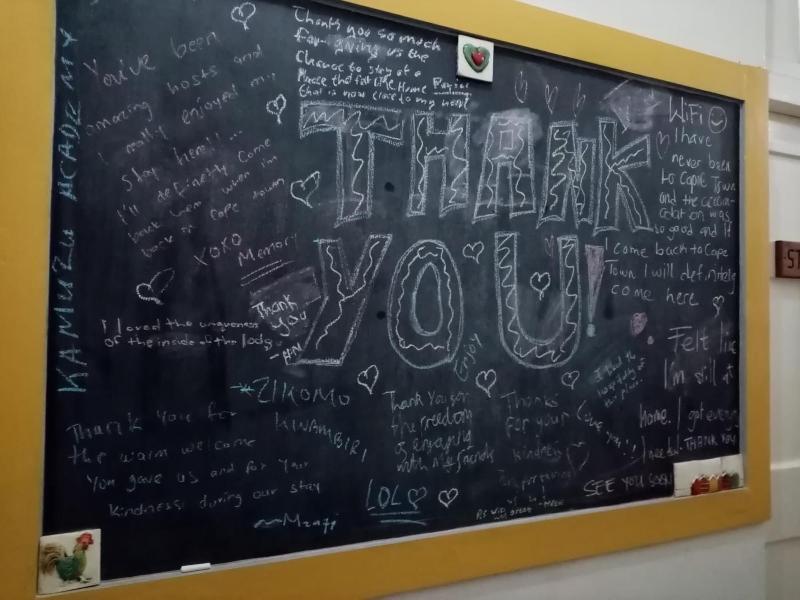 KAMUZU ACADEMY
You've been
amazing hosts and
I really enjoyed my
stay here!!...
I'll definitely come
back here when I'm
back in Cape Town
XOXO Memory
Thank you so much
for giving us the
chance to stay at a
Place that felt like Home
that is now close to my heart
THANK
YOU!
WiFi
I have
never been
to Cape Town
and the accom-
odation was
so good and if
I come back to Cape
Town I will definitely
come here
Thank
you
I loved the uniqueness
of the inside of the lodge
Enjoy
Felt like
I'm still at
home. I got every
I need. THANK YOU
SEE YOU SOON
ZIKOMO
KWAMBIRI
Thank you for
the warm welcome
you gave us and for your
kindness during our stay
Thank you for
the freedom
of engaging
with my friends
LOL
Thanks
for your
kindness
Love you!!